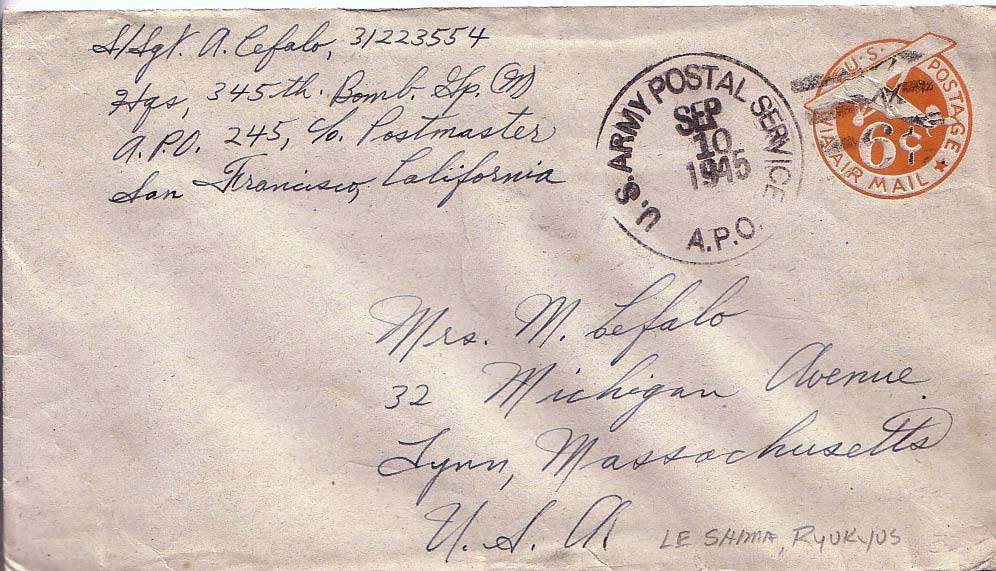 S/Sgt. A. Cefalo, 31223554
Hqs, 345th. Bomb. Gp. (M)
A.P.O. 245, c/o Postmaster
San Francisco, California
U.S. ARMY POSTAL SERVICE
SEP
10
1945
A.P.O.
U.S. POSTAGE
6¢
VIA AIR MAIL
Mrs. M. Cefalo
32 Michigan Avenue
Lynn, Massachusetts
U. S. A
LE SHIMA, RYUKYUS